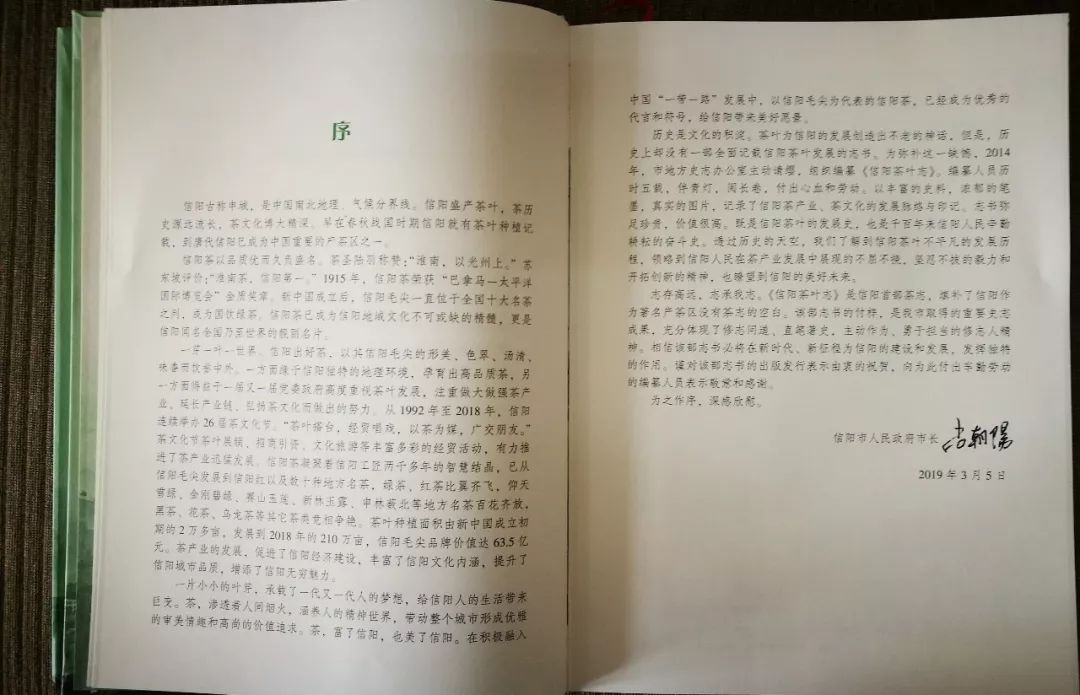 序
信阳古称申城，是中国南北地理、气候分界线。信阳盛产茶叶，茶历
史源远流长，茶文化博大精深。早在春秋战国时期信阳就有茶叶种植记
载，到唐代信阳已成为中国重要的产茶区之一。
信阳茶以品质优而久负盛名。茶圣陆羽称赞：“淮南，以光州上。”苏
东坡评价：“淮南茶，信阳第一。”1915年，信阳茶荣获“巴拿马—太平洋
国际博览会”金质奖章。新中国成立后，信阳毛尖一直位于全国十大名茶
之列，成为国饮绿茶。信阳茶已成为信阳地域文化不可或缺的精髓，更是
信阳闻名全国乃至世界的靓丽名片。
一芽一叶一世界。信阳出好茶，以其信阳毛尖的形美、色翠、汤清、
味香而饮誉中外。一方面缘于信阳独特的地理环境，孕育出高品质茶，另
一方面得益于一届又一届党委政府高度重视茶叶发展，注重做大做强茶产
业、延长产业链、弘扬茶文化而做出的努力。从1992年至2018年，信阳
连续举办26届茶文化节。“茶叶搭台，经贸唱戏，以茶为媒，广交朋友。”
茶文化节茶叶展销、招商引资、文化旅游等丰富多彩的经贸活动，有力推
进了茶产业迅猛发展。信阳茶凝聚着信阳工匠两千多年的智慧结晶，已从
信阳毛尖发展到信阳红以及数十种地方名茶，绿茶、红茶比翼齐飞，仰天
雪绿、金刚碧绿、赛山玉莲、新林玉露、申林薮北等地方名茶百花齐放，
黑茶、花茶、乌龙茶等其它茶类竞相争艳。茶叶种植面积由新中国成立初
期的2万多亩，发展到2018年的210万亩，信阳毛尖品牌价值达63.5亿
元。茶产业的发展，促进了信阳经济建设，丰富了信阳文化内涵，提升了
信阳城市品质，增添了信阳无穷魅力。
一片小小的叶芽，承载了一代又一代人的梦想，给信阳人的生活带来
巨变。茶，渗透着人间烟火，涵养人的精神世界，带动整个城市形成优雅
的审美情趣和高尚的价值追求。茶，富了信阳，也美了信阳。在积极融入
中国“一带一路”发展中，以信阳毛尖为代表的信阳茶，已经成为优秀的
代言和符号，给信阳带来美好愿景。
历史是文化的积淀。茶叶为信阳的发展创造出不老的神话，但是，历
史上却没有一部全面记载信阳茶叶发展的志书。为弥补这一缺憾，2014
年，市地方史志办公室主动请缨，组织编纂《信阳茶叶志》。编纂人员历
时五载，伴青灯，阅长卷，付出心血和劳动。以丰富的史料，浓郁的笔
墨，真实的图片，记录了信阳茶产业、茶文化的发展脉络与印记。志书弥
足珍贵，价值很高。既是信阳茶叶的发展史，也是千百年来信阳人民辛勤
耕耘的奋斗史。透过历史的天空，我们了解到信阳茶叶不平凡的发展历
程，领略到信阳人民在茶产业发展中展现的不屈不挠，坚忍不拔的毅力和
开拓创新的精神，也瞭望到信阳的美好未来。
志存高远，志承我志。《信阳茶叶志》是信阳首部茶志，填补了信阳作
为著名产茶区没有茶志的空白。该部志书的付梓，是我市取得的重要史志
成果，充分体现了修志问道、直笔著史，主动作为、勇于担当的修志人精
神。相信该部志书必将在新时代、新征程为信阳的建设和发展，发挥独特
的作用。谨对该部志书的出版发行表示由衷的祝贺，向为此付出辛勤劳动
的编纂人员表示敬意和感谢。
为之作序，深感欣慰。
信阳市人民政府市长 尚朝阳
2019年3月5日